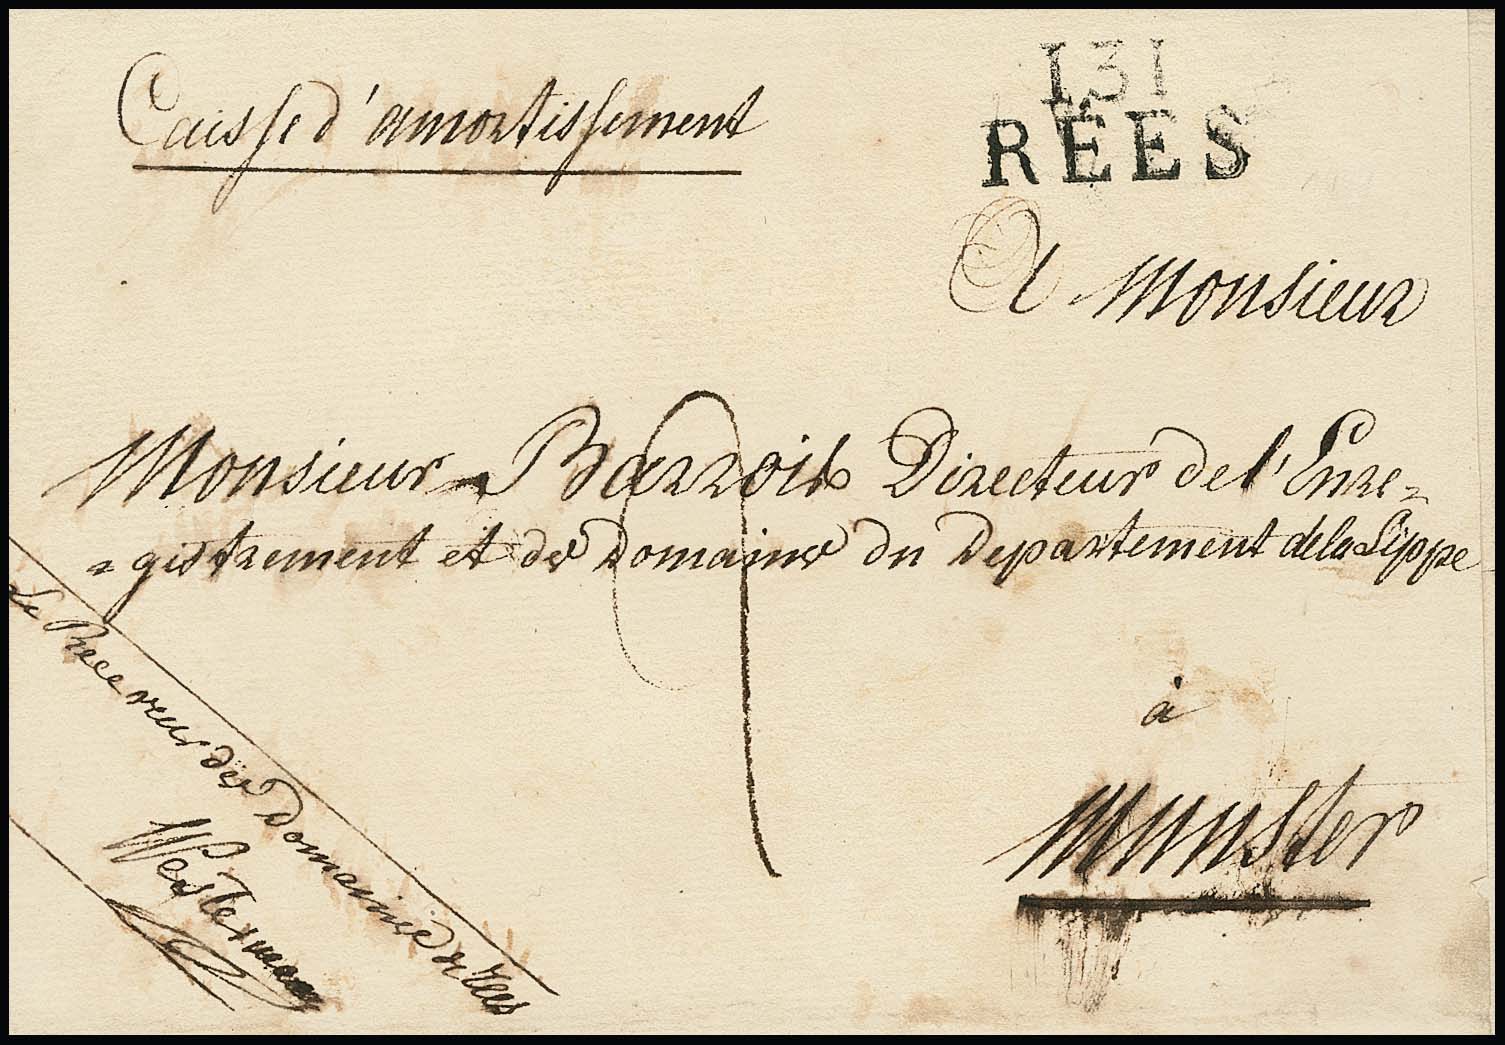 Caisse d'amortissement
131
REES
A Monsieur
Monsieur Barrois Directeur de l'Enre=
=gistrement et des Domaines du Departement de la Lippe
9
à
Munster
Le Receveur des Domaines à Rees
Westerman